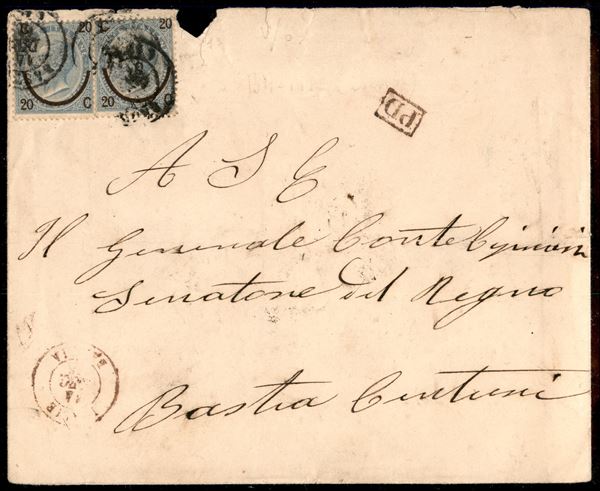 20 20
20 C 20 C
PD
A S E
Il Generale Conte
Senatore del Regno
Bastia